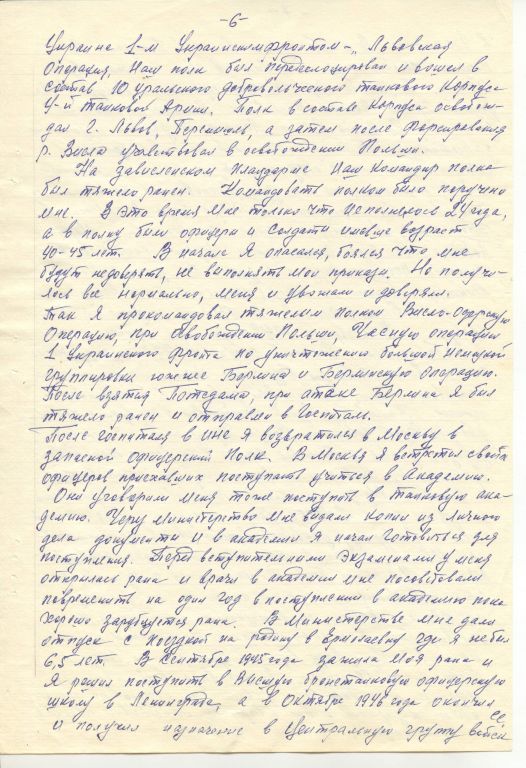 -6-
Украине 1-м Украинским фронтом - "Львовская
Операция, Нам полк был передеслоцирован и вошел в
состав 10 уральского добровольческого танкового Корпуса
4-й танковой Армии. Полк в составе Корпуса освобож-
дал г. Львов, Перемышль, а затем после Форсирования
р. Висла участвовал в освобождении Польши.
На завислинском плацдарме Нам Командир полка
был тяжело ранен. Командовать полком было поручено
мне. В это время мне только что исполнилось 24 года,
а в полку были офицеры и солдаты имевшие возраст
40-45 лет. В начале я опасался, боялся что мне
будут недоверять, не выполнять мои приказы. Но получи-
лось всё нормально, меня и уважали и доверяли.
Так я прокомандовал тяжелым полком Висло-Одерскую
Операцию, при освобождении Польши, Частную операцию
1 Украинского фронта по уничтожению большой немецкой
группировки южнее Берлина и Берлинскую операцию.
После взятия Потсдама, при атаке Берлина я был
тяжело ранен и отправлен в госпиталь.
После госпиталя в июне я возвратился в Москву в
запасной офицерский Полк. В Москве я встретил своих
офицеров приехавших поступать учиться в Академию.
Они уговорили меня тоже поступить в танковую ака-
демию. Через министерство мне выдали копии из личного
дела документы и в академии я начал готовиться для
поступления. Перед вступительными экзаменами у меня
открылась рана и врачи в академии мне посоветовали
повременить на один год в поступлении в академию пока
хорошо зарубцуется рана. В Министерстве мне дали
отпуск с поездкой на родину в Ермолаевку где я не был
6,5 лет. В Сентябре 1945 года зажила моя рана и
я решил поступить в Высшую бронетанковую офицерскую
школу в Ленинграде, а в Октябре 1946 года окончил её
и получил назначение в Центральную группу войск